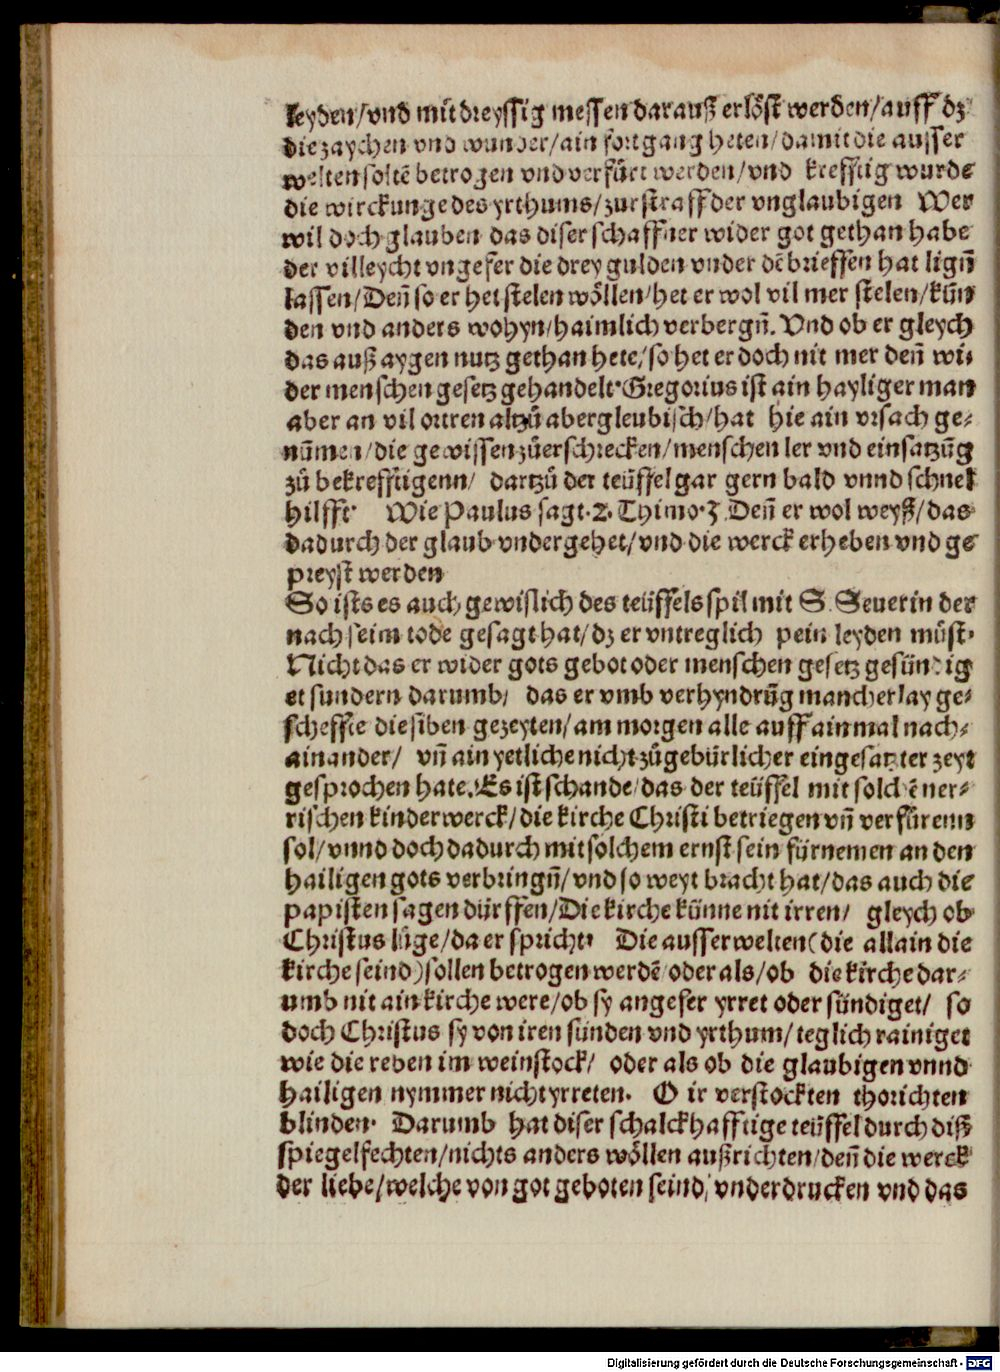 leyden/vnd mit dreyssig messen darauß erlößt werden/auff dz
die zaychen vnd wunder/ain fortgang heten/damit die ausser
welten soltē betrogen vnd verfůrt werden/vnd krefftig wurde
die wirckunge des yrthums/zur straff der vnglaubigen Wer
wil doch glauben das diser schaffner wider got gethan habe
der villeycht vngefer die drey gulden vnder dē brieffen hat lign̄
lassen/Den̄ so er het stelen wőllen/het er wol vil mer stelen/kün
den vnd anders wohyn/haimlich verbergn̄. Vnd ob er gleych
das auß aygen nutz gethan hete/so het er doch nit mer den̄ wi⸗
der menschen gesetz gehandelt·Gregorius ist ain hayliger man
aber an vil ortren altzů abergleubisch/hat hie ain vrsach ge⸗
nūmen/die gewissen zůerschrecken/menschen ler vnd einsatzūg
zů bekrefftigenn/ dartzů der teüffel gar gern bald vnnd schnel
hilfft· Wie Paulus sagt·2·Thimo·3 Den̄ er wol weyß/das
dadurch der glaub vndergehet/vnd die werck erheben vnd ge
preyst werden
So ists es auch gewislich des teüffels spil mit S. Seuerin der
nach seim tode gesagt hat/dz er vntreglich pein leyden můst·
Nicht das er wider gots gebot oder menschen gesetz gesündig
et sundern darumb/ das er vmb verhyndrūg mancherlay ge⸗
scheffte die siben gezeyten/am morgen alle auff ain mal nach⸗
ainander/ vn̄ ain yetliche nicht zů gebürlicher eingesatzter zeyt
gesprochen hate. Es ist schande/das der teüffel mit solchē ner⸗
rischen kinderwerck/die kirche Christi betriegen vn̄ verfürenn
sol/vnnd doch dadurch mit solchem ernst sein fürnemen an den
hailigen gots verbringn̄/vnd so weyt bracht hat/das auch die
papisten sagen dürffen/Die kirche künne nit irren/ gleych ob
Christus lüge/da er spricht· Die ausserwelten(die allain die
kirche seind)sollen betrogen werdē oder als/ob die kirche dar⸗
umb nit ain kirche were/ob sy angefer yrret oder sündiget/ so
doch Christus sy von iren sünden vnd yrthum/teglich rainiget
wie die reben im weinstock/ oder als ob die glaubigen vnnd
hailigen nymmer nicht yrreten. O ir verstockten thorichten
blinden· Darumb hat diser schalckhafftige teüffel durch diß
spiegelfechten/nichts anders wőllen außrichten/den̄ die werck
der liebe/welche von got geboten seind/vnderdrucken vnd das
Digitalisierung gefördert durch die Deutsche Forschungsgemeinschaft - DFG